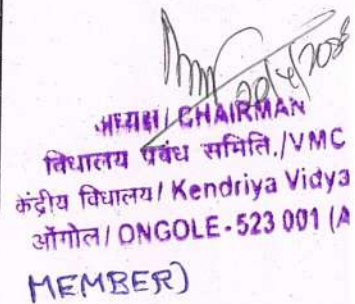 अध्यक्ष / CHAIRMAN
विधालय प्रबंध समिति./VMC
केंद्रीय विधालय/ Kendriya Vidya
ओंगोल / ONGOLE - 523 001 (A
MEMBER)